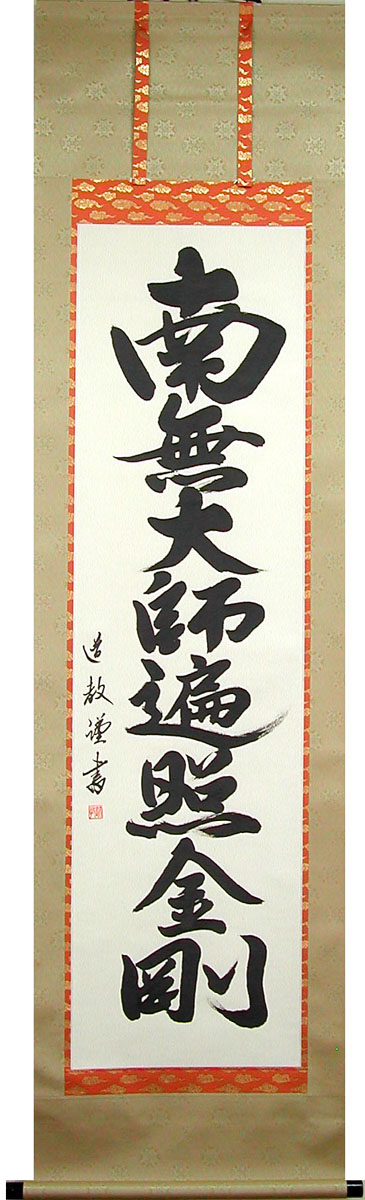 南無大師遍照金剛
道教謹書